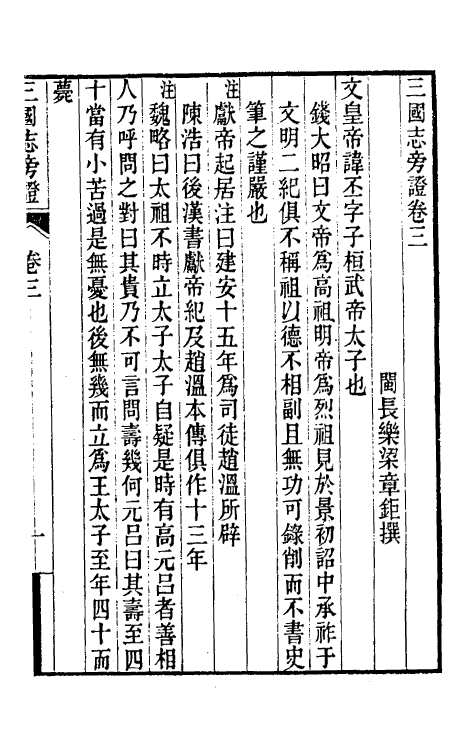 三國志旁證卷三
閩長樂梁章鉅撰
文皇帝諱丕字子桓武帝太子也
錢大昭曰文帝爲高祖明帝爲烈祖見於景初詔中承祚于
文明二紀俱不稱祖以德不相副且無功可錄削而不書史
筆之謹嚴也
注獻帝起居注曰建安十五年爲司徒趙溫所辟
陳浩曰後漢書獻帝紀及趙溫本傳俱作十三年
注魏略曰太祖不時立太子太子自疑是時有高元呂者善相
人乃呼問之對曰其貴乃不可言問壽幾何元呂曰其壽至四
十當有小苦過是無憂也後無幾而立爲王太子至年四十而
薨
三國志旁證 卷三 一